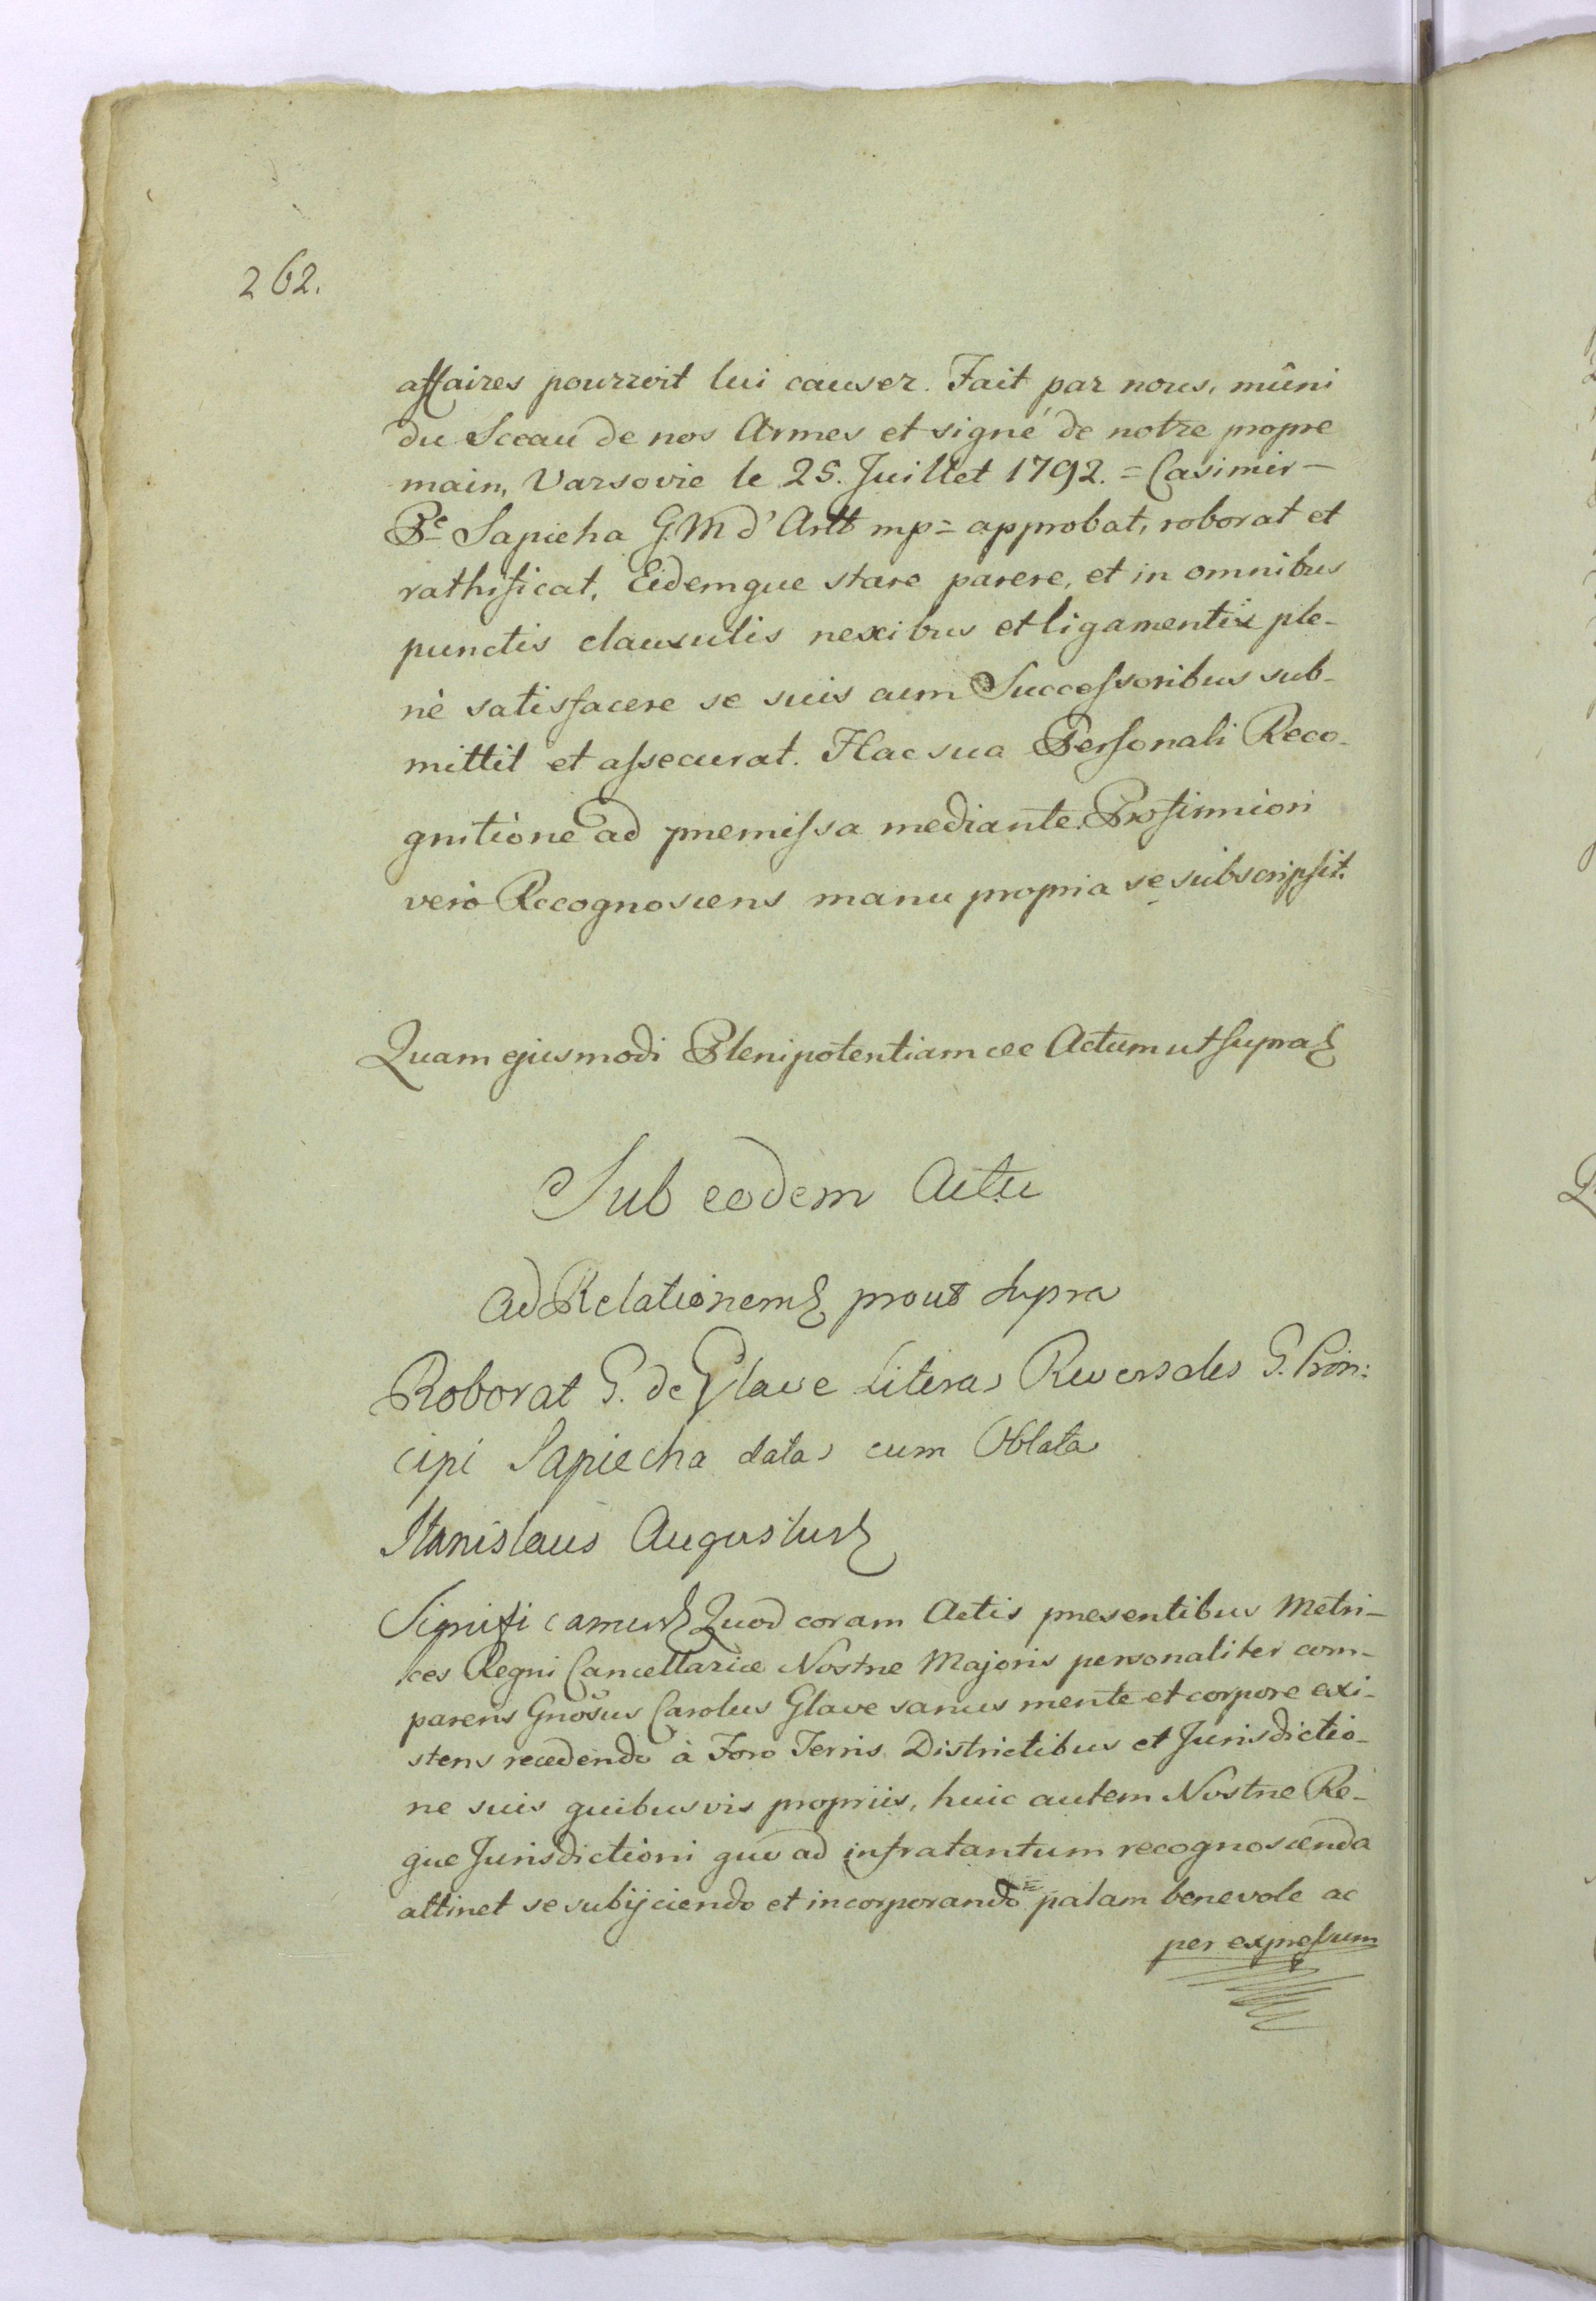 262.
affaires pourroit lui causer. Fait par nous, mûni
du Sceau de nos Armes et signé de notre propre
main, Varsovie le 25. Juillet 1792. = Casimir –
Pce Sapieha G. M d'Artt mp = approbat, roborat et
rathificat, Eidemque stare parere, et in omnibus
punctis clausulis nexibus et ligamentis ple-
nè satisfacere se suis cum Successoribus sub-
mittit et assecurat. Hac sua Personali Reco-
gnitione ad premissa mediante. Pro firmiori
verò Recognoscens manu propria se subscripsit.
Quam ejusmodi Plenipotentiam etc Actum ut supra
Sub eodem Actu
Ad Relationem prout supra
Roborat G. de Glave Literas Reversales G. Prin:
cipi Sapiecha datas cum Oblata
Stanislaus Augustus
Significamus Quod coram Actis presentibus Metri-
ces Regni Cancellariæ Nostræ Majoris personaliter com-
parens Gnosus Carolus Glave sanus mente et corpore exi-
stens recedendo à Foro Terris Districtibus et Jurisdictio-
ne suis quibusvis propriis, huic autem Nostræ Re-
giæ Jurisdictioni quo ad infratantum recognoscenda
attinet se subijciendo et incorporando palam benevole ac
per expressum